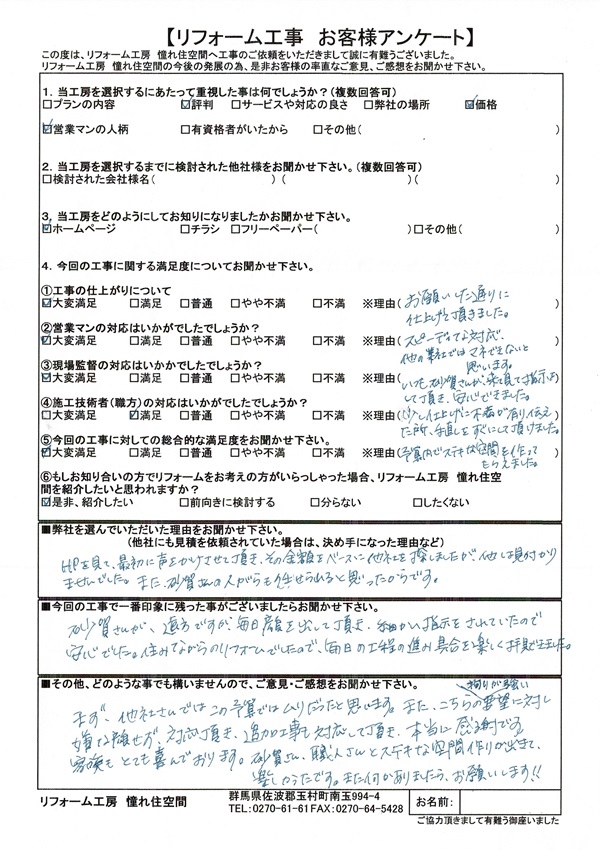 【リフォーム工事　お客様アンケート】
この度は、リフォーム工房　憧れ住空間へ工事のご依頼をいただきまして誠に有難うございました。
リフォーム工房　憧れ住空間の今後の発展の為、是非お客様の率直なご意見、ご感想をお聞かせ下さい。
1. 当工房を選択するにあたって重視した事は何でしょうか?(複数回答可)
□プランの内容　☑評判　□サービスや対応の良さ　□弊社の場所　☑価格
☑営業マンの人柄　□有資格者がいたから　□その他(　)
2. 当工房を選択するまでに検討された他社様をお聞かせ下さい。(複数回答可)
□検討された会社様名(　)(　)(　)
3, 当工房をどのようにしてお知りになりましたかお聞かせ下さい。
☑ホームページ　□チラシ　□フリーペーパー(　)□その他(　)
4. 今回の工事に関する満足度についてお聞かせ下さい。
①工事の仕上がりについて
☑大変満足　□満足　□普通　□やや不満　□不満　※理由(お願いした通りに
仕上げて頂きました。
②営業マンの対応はいかがでしたでしょうか?
☑大変満足　□満足　□普通　□やや不満　□不満　※理由(スピーディーな対応、
他の業社ではマネできないと
思います。
③現場監督の対応はいかかでしたでしょうか?
☑大変満足　□満足　□普通　□やや不満　□不満　※理由(いつも砂賀さんが、来て見て指示を
して頂き、安心できました。
④施工技術者(職方)の対応はいかがでしたでしょうか?
□大変満足　☑満足　□普通　□やや不満　□不満　※理由(少し仕上げに不備が有り伝え
た所、手直しをすぐにして頂けました。
⑤今回の工事に対しての総合的な満足度をお聞かせ下さい。
☑大変満足　□満足　□普通　□やや不満　□不満　※理由(予算内でステキな空間を作って
もらえました。
⑥もしお知り合いの方でリフォームをお考えの方がいらっしゃった場合、リフォーム工房　憧れ住空
間を紹介したいと思われますか?
☑是非、紹介したい　□前向きに検討する　□分らない　□したくない
■弊社を選んでいただいた理由をお聞かせ下さい。
(他社にも見積を依頼されていた場合は、決め手になった理由など)
HPを見て、最初に声をかけさせて頂き、その金額をベースに他社を探しましたが、他に見付かり
ませんでした。また、砂賀さんの人がらも任せられると思ったからです。
■今回の工事で一番印象に残った事がございましたらお聞かせ下さい。
砂賀さんが、遠方ですが、毎日顔を出して頂き、細かい指示をされていたので
安心でした。住みながらのリフォームでしたので、毎日の工程の進み具合を楽しく拝見できました。
■その他、どのような事でも構いませんので、ご意見・ご感想をお聞かせ下さい。
まず、他社さんではこの予算ではムリだったと思います。また、こちらの要望に対し
嫌な顔せず、対応頂き、追加工事も対応して頂き、本当に感謝です。
家族もとても喜んでおります。砂賀さん、職人さんとステキな空間作りが出きて、
楽しかったです。また何かありましたら、お願いします!!
リフォーム工房　憧れ住空間
群馬県佐波郡玉村町南玉994-4
TEL:0270-61-61 FAX:0270-64-5428
お名前:
ご協力頂きまして有難う御座いました